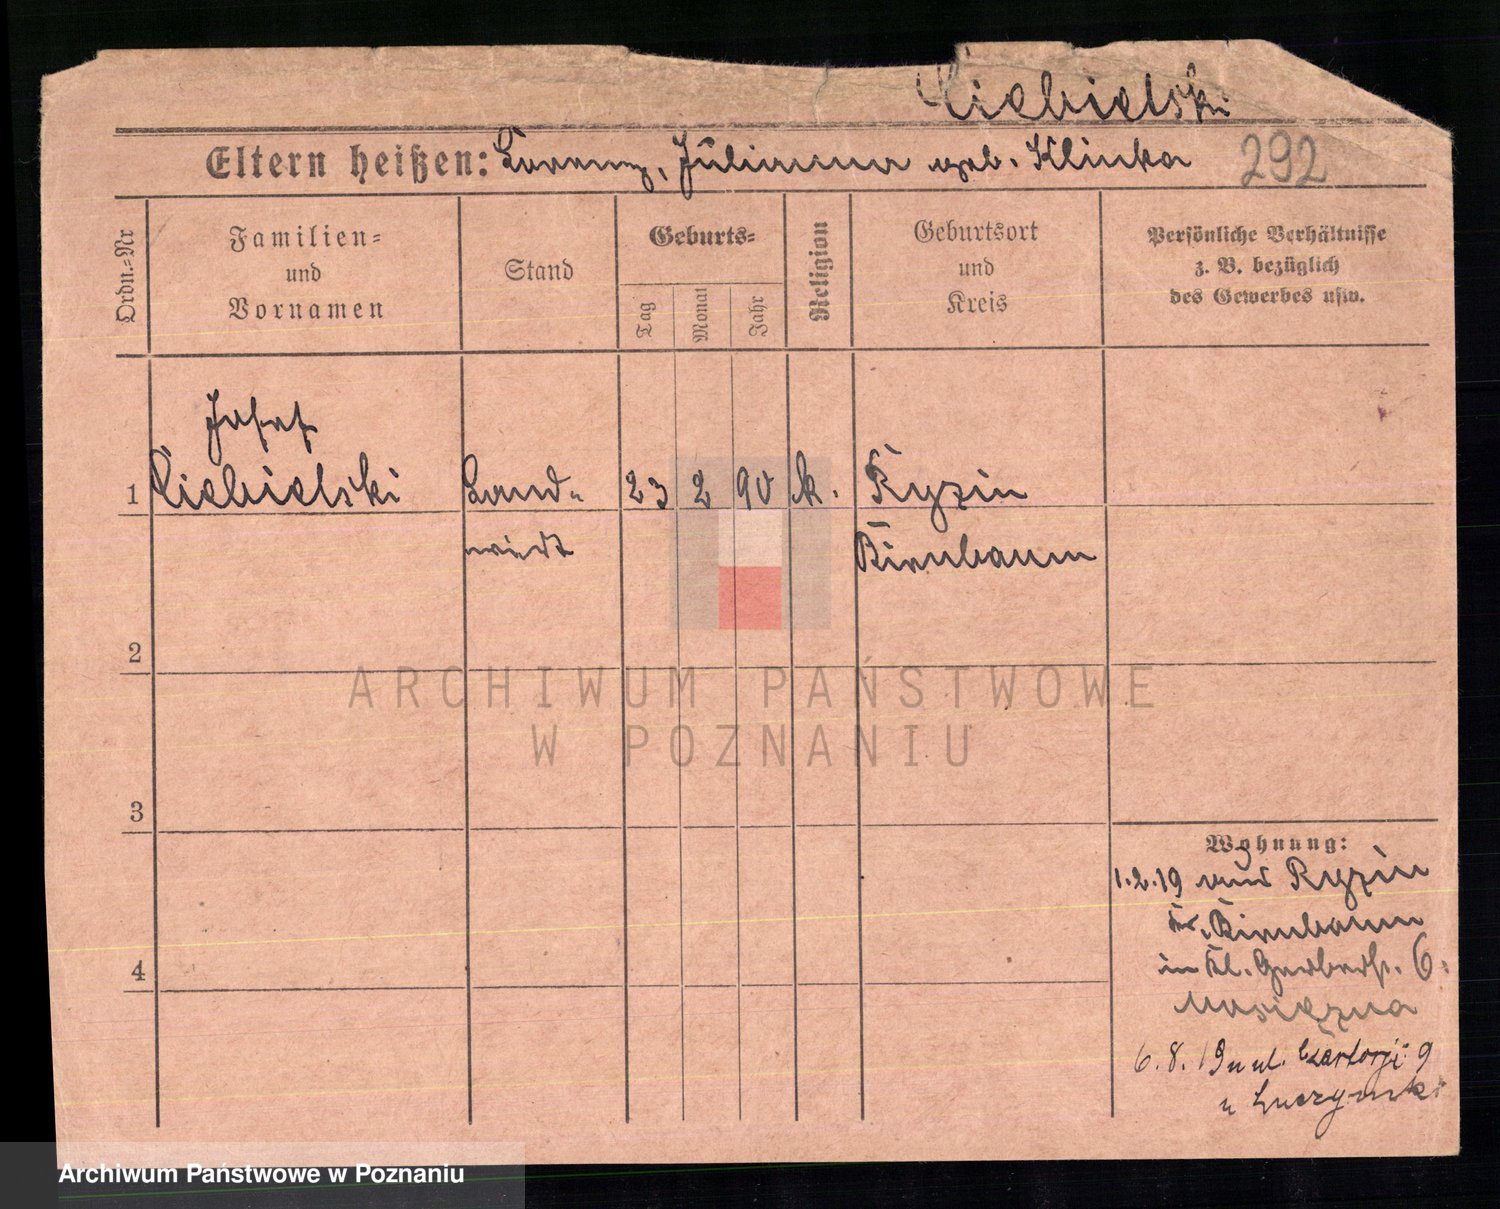 Ciebielski
Eltern heißen: Lorenz, Julianna geb. Klinka 292
Ordn.-Nr
Familien-
und
Vornamen
Stand
Geburts-
Tag
Monat
Jahr
Religion
Geburtsort
und
Kreis
Persönliche Verhältnisse
z. B. bezüglich
des Gewerbes usw.
Josef
1 Ciebielski Land- 23 2 90 k. Ryzin
wirt Birnbaum
2
3
4
Wohnung:
1.2.19 aus Ryzin
Kr. Birnbaum
in Kl. Gerberstr. 6.
6.8.19 n ul. 9
ARCHIWUM PAŃSTWOWE
W POZNANIU
Archiwum Państwowe w Poznaniu